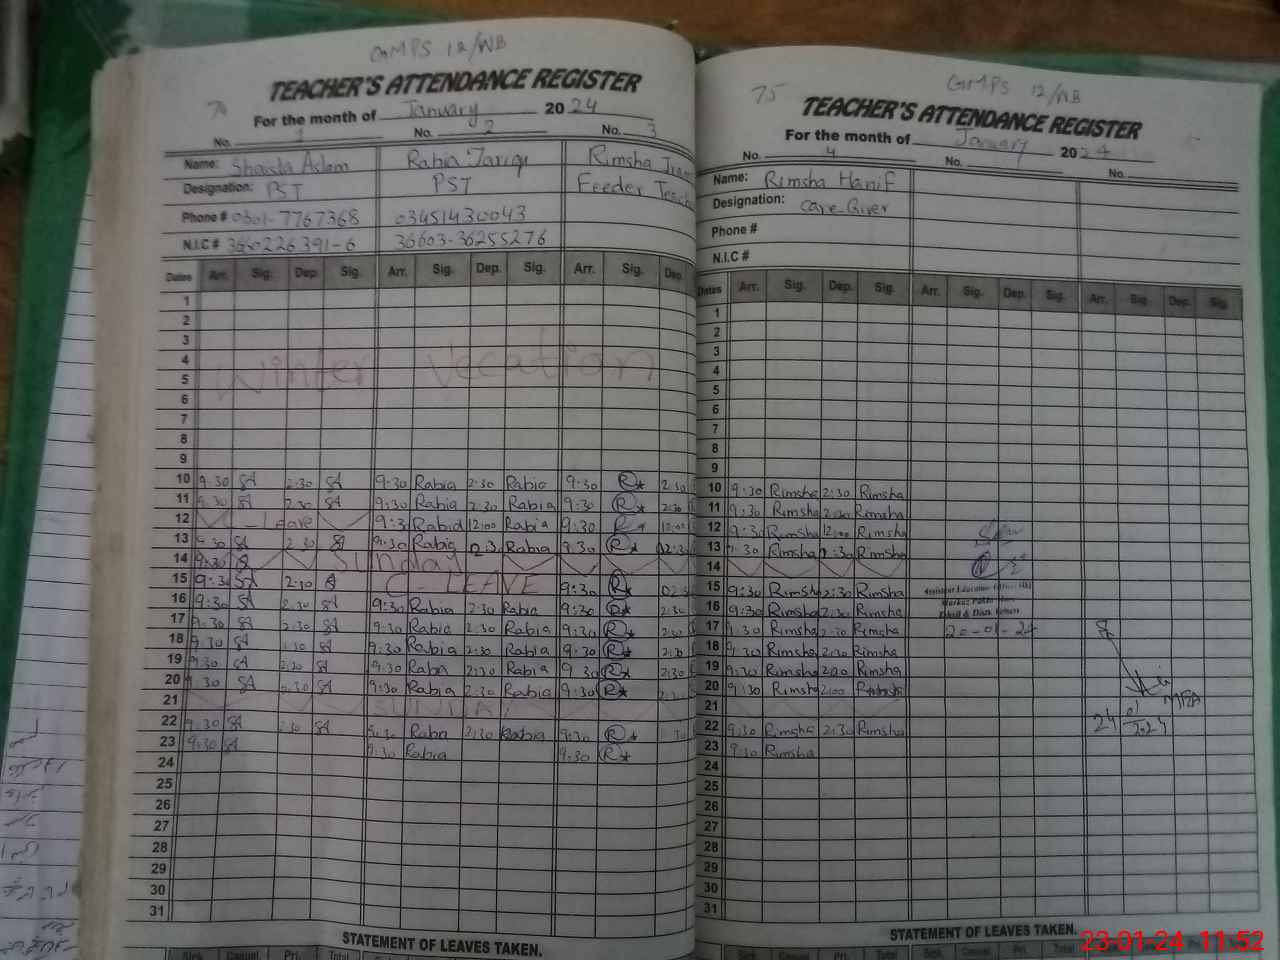 GMPS 12/WB
TEACHER'S ATTENDANCE REGISTER
70 For the month of January 2024
No. 1 No. 2 No. 3
Name: Shaista Aslam Rabia Tariq Rimsha
Designation: PST PST Feeder Teach
Phone # 0301-7767368 03451430043
N.I.C # 36603-36255276
Dates Arr. Sig. Dep. Sig. Arr. Sig. Dep. Sig. Arr. Sig. Dep.
1
2
3
4 Winter Vecation
5
6
7
8
9
10 9:30 SA 2:30 SA 9:30 Rabia 2:30 Rabia 9:30 R* 2:30
11 9:30 SA 2:30 SA 9:30 Rabia 2:30 Rabia 9:30 R* 2:30
12 - Leave 9:3 Rabia 12:00 Rabia 9:30 R* 12:00
13 9:30 SA 2:30 SA 9:30 Rabia 2:3 Rabia 9:30 R* 02:30
14 9:30 Sunday
15 9:30 SA 2:30 C-LEAVE 9:30 R* 02:3
16 9:30 SA 2:30 SA 9:30 Rabia 2:30 Rabia 9:30 R* 2:30
17 9:30 SA 2:30 SA 9:30 Rabia 2:30 Rabia 9:30 R* 2:30
18 9:30 SA 2:30 SA 9:30 Rabia 2:30 Rabia 9:30 R* 2:30
19 9:30 SA 2:30 SA 9:30 Rabia 2:30 Rabia 9:30 R* 2:30
20 9:30 SA 2:30 SA 9:30 Rabia 2:30 Rabia 9:30 R*
21 SUNDAY
22 9:30 SA 2:30 SA 9:30 Rabia 2:30 Rabia 9:30 R* 30
23 9:30 SA 9:30 Rabia 9:30 R*
24
25
26
27
28
29
30
31
STATEMENT OF LEAVES TAKEN.
Sick Casual. Pri. Total
GMPS 12/WB
75 TEACHER'S ATTENDANCE REGISTER
For the month of January 2024
No. 4 No. No.
Name: Rimsha Hanif
Designation: Care-Giver
Phone #
N.I.C #
Dates Arr. Sig. Dep. Sig. Arr. Sig. Dep. Sig. Arr. Sig. Dep. Sig.
1
2
3
4
5
6
7
8
9
10 9:30 Rimsha 2:30 Rimsha
11 9:30 Rimsha 2:00 Rimsha
12 9:30 Rimsha 12:00 Rimsha
13 9:30 Rimsha 2:30 Rimsha
14
15 9:30 Rimsha 2:30 Rimsha
16 9:30 Rimsha 2:30 Rimsha
17 9:30 Rimsha 2:30 Rimsha 20-01-24
18 9:30 Rimsha 2:30 Rimsha
19 9:30 Rimsha 2:00 Rimsha
20 9:30 Rimsha 2:00 Rimsha MEA
21 24/01/2024
22 9:30 Rimsha 2:30 Rimsha
23 9:30 Rimsha
24
25
26
27
28
29
30
31
STATEMENT OF LEAVES TAKEN.
Sick Casual. Pri. Total
23-01-24 11:52